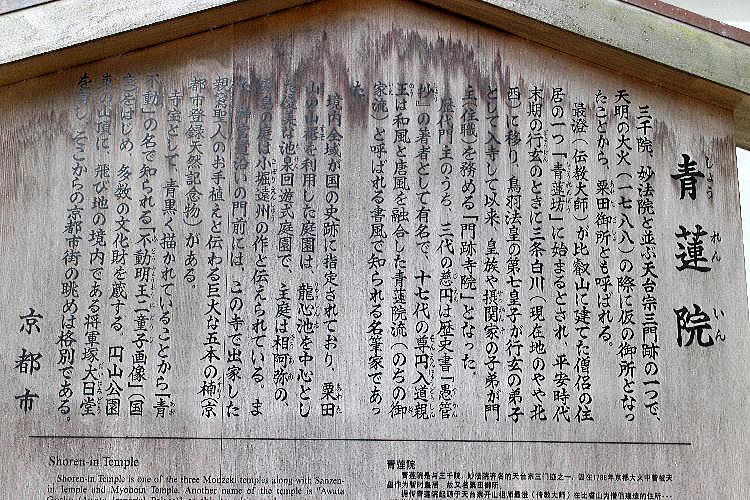 青蓮院
しょう れん いん
三千院、妙法院と並ぶ天台宗三門跡の一つで、
天明の大火（一七八八）の際に仮の御所となっ
たことから、粟田御所とも呼ばれる。
最澄（伝教大師）が比叡山に建てた僧侶の住
居の一つ「青蓮坊」に始まるとされ、平安時代
末期の行玄のときに三条白川（現在地のやや北
西）に移り、鳥羽法皇の第七皇子が行玄の弟子
として入寺して以来、皇族や摂関家の子弟が門
主（住職）を務める「門跡寺院」となった。
歴代門主のうち、三代の慈円は歴史書「愚管
抄」の著者として有名で、十七代の尊円入道親
王は和風と唐風を融合した青蓮院流（のちの御
家流）と呼ばれる書風で知られる名筆家であっ
た
境内全域が国の史跡に指定されており、粟田
山の山裾を利用した庭園は、龍心池を中心とし
た優美な池泉回遊式庭園で、主庭は相阿弥の、
の庭は小堀遠州の作と伝えられている。ま
沿いの門前には、この寺で出家した
親鸞聖人のお手植えと伝わる巨大な五本の楠（京
都市登録天然記念物）がある。
寺宝として、青黒く描かれていることから「青
不動」の名で知られる「不動明王二童子画像」（国
宝）をはじめ、多数の文化財を蔵する。円山公園
東の山頂に、飛び地の境内である将軍塚大日堂
を有し、ここからの京都市街の眺めは格別である。
京都市
Shoren-in Temple
Shoren-in Temple is one of the three Monzeki temples along with Sanzen-
in Temple and Myohoin Temple. Another name of the temple is "Awata
青莲院
青莲院是与三千院，妙法院齐名的天台宗三门迹之一，因在1788年京都大火中曾被天